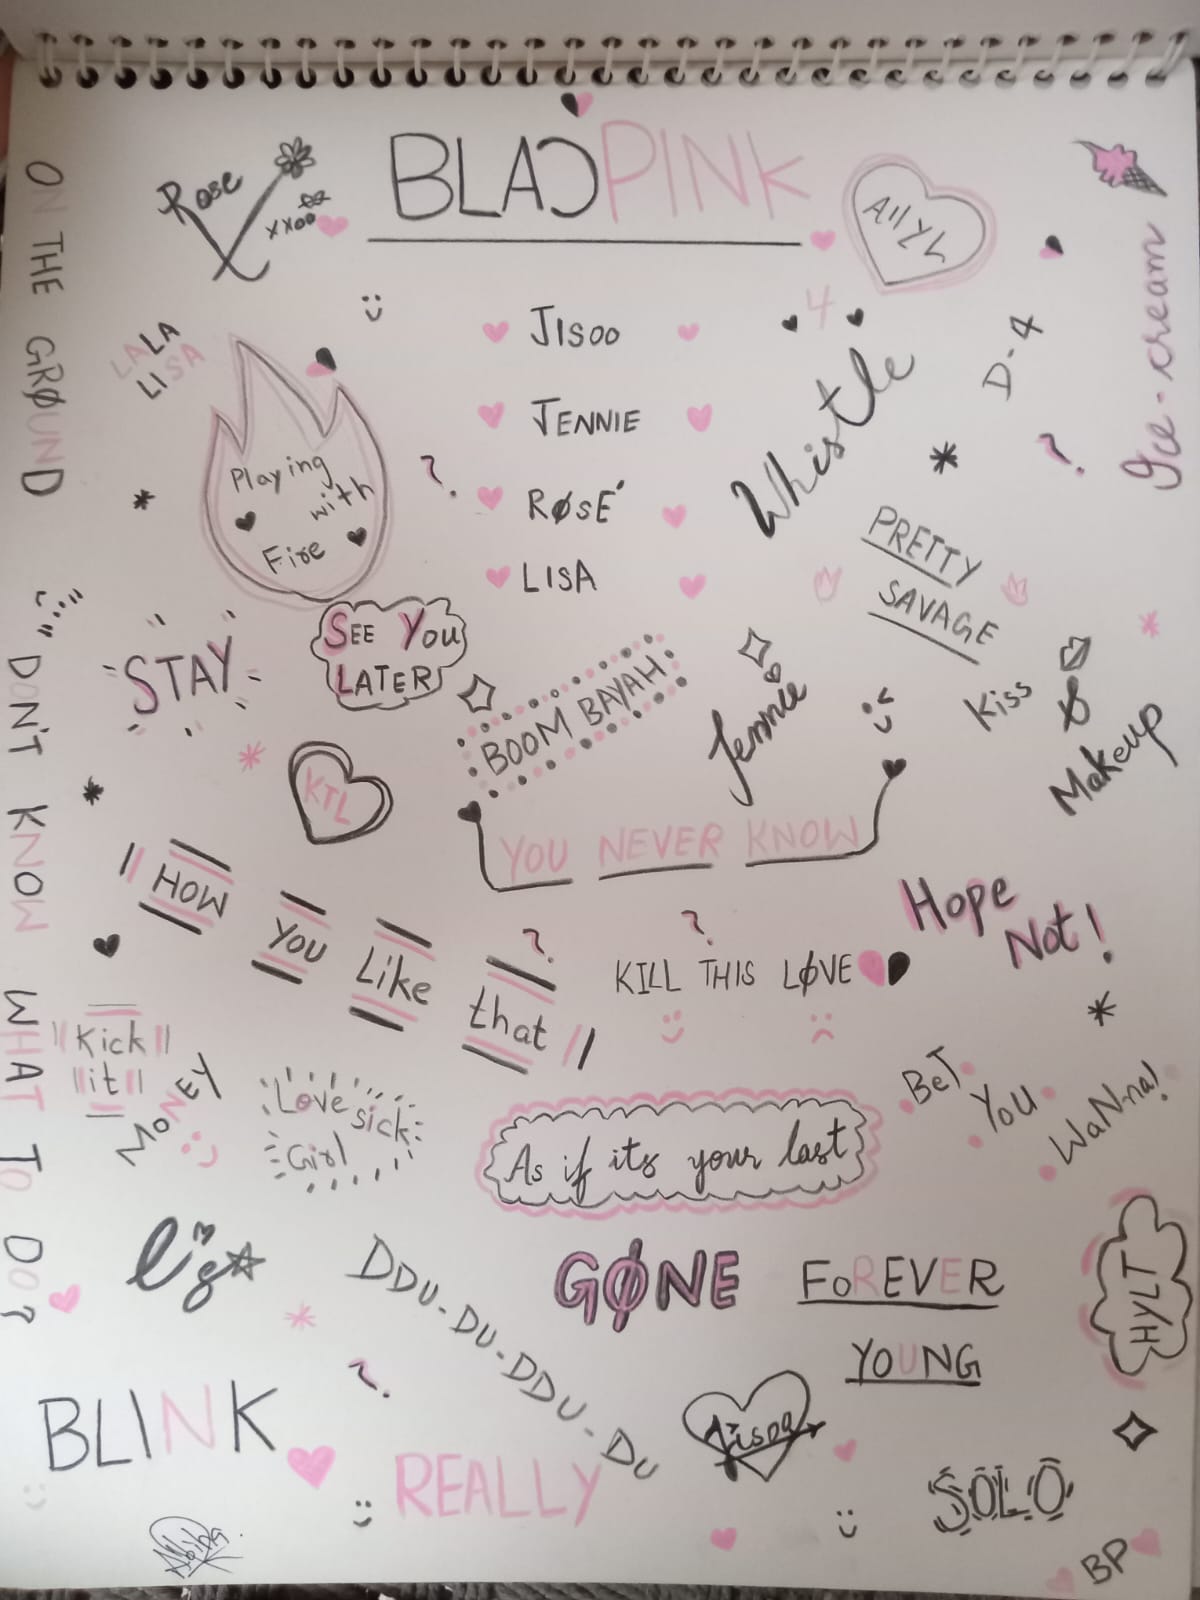 BLACPINK
Rose
xxoo
AllYL
Ice-cream
ON THE GRØUND
LALA
LISA
JISOO
4
JENNIE
RØSÉ
LISA
Whistle
D-4
?
Playing
with
Fire
?
PRETTY
SAVAGE
STAY
SEE YOU
LATER
BOOM BAYAH
Jennie
Kiss
&
Makeup
DON'T KNOW WHAT TO DO?
KTL
YOU NEVER KNOW
HOW
YOU
Like
that
?
?
KILL THIS LØVE
Hope
Not!
Kick
it
MONEY
Love
sick
Girl
As if its your last
BeT
You
WaNna!
lisa
DDU-DU-DDU-DU
GØNE
FOREVER
YOUNG
HYLT
BLINK
?
REALLY
Jisoo
SOLO
BP